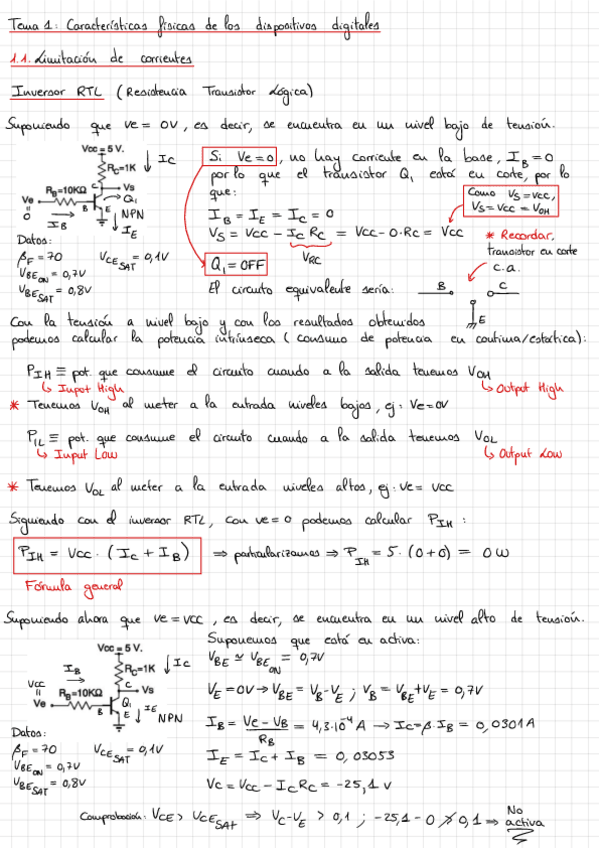 Tema 1: Características físicas de los dispositivos digitales
1.1. Limitación de corrientes
Inversor RTL (Resistencia Transistor Lógica)
Suponiendo que ve = 0V, es decir, se encuentra en un nivel bajo de tensión.
Vcc = 5 V.
Rc=1K
Ic
RB=10KΩ
C
Vs
Q1
B
E
NPN
Ve
=
0
IB
IE
Datos:
βF = 70
VCESAT = 0,1V
VBEON = 0,7V
VBESAT = 0,8V
Si Ve = 0, no hay corriente en la base, IB = 0
por lo que el transistor Q1 está en corte, por lo
que:
IB = IE = Ic = 0
Vs = Vcc - Ic Rc = Vcc - 0·Rc = Vcc
VRC
Como Vs = Vcc,
Vs = Vcc = VOH
Q1 = OFF
* Recordar,
transistor en corte
c.a.
El circuito equivalente sería:
B
C
E
Con la tensión a nivel bajo y con los resultados obtenidos
podemos calcular la potencia intrínseca (consumo de potencia en continua/estática):
PIH ≡ pot. que consume el circuito cuando a la salida tenemos VOH
↳ Input High
↳ Output High
* Tenemos VOH al meter a la entrada niveles bajos, ej: Ve = 0V
PIL ≡ pot. que consume el circuito cuando a la salida tenemos VOL
↳ Input Low
↳ Output Low
* Tenemos VOL al meter a la entrada niveles altos, ej: ve = Vcc
Siguiendo con el inversor RTL, con ve = 0 podemos calcular PIH:
PIH = Vcc · (Ic + IB) ⇒ particularizamos ⇒ PIH = 5 · (0+0) = 0 W
Fórmula general
Suponiendo ahora que ve = vcc, es decir, se encuentra en un nivel alto de tensión.
Vcc = 5 V.
IB
Rc=1K
Ic
Vcc
=
Ve
RB=10KΩ
C
Vs
Q1
B
E
IE
NPN
Datos:
βF = 70
VCESAT = 0,1V
VBEON = 0,7V
VBESAT = 0,8V
Suponemos que está en activa:
VBE ≃ VBEON = 0,7V
VE = 0V → VBE = VB - VE ; VB = VBE + VE = 0,7V
IB = Ve - VB / RB = 4,3·10⁻⁴ A → Ic = β·IB = 0,0301A
IE = Ic + IB = 0,03053
Vc = Vcc - Ic Rc = -25,1 V
Comprobación: VCE > VCESAT ⇒ Vc - VE > 0,1 ; -25,1 - 0 ≯ 0,1 ⇒ No activa